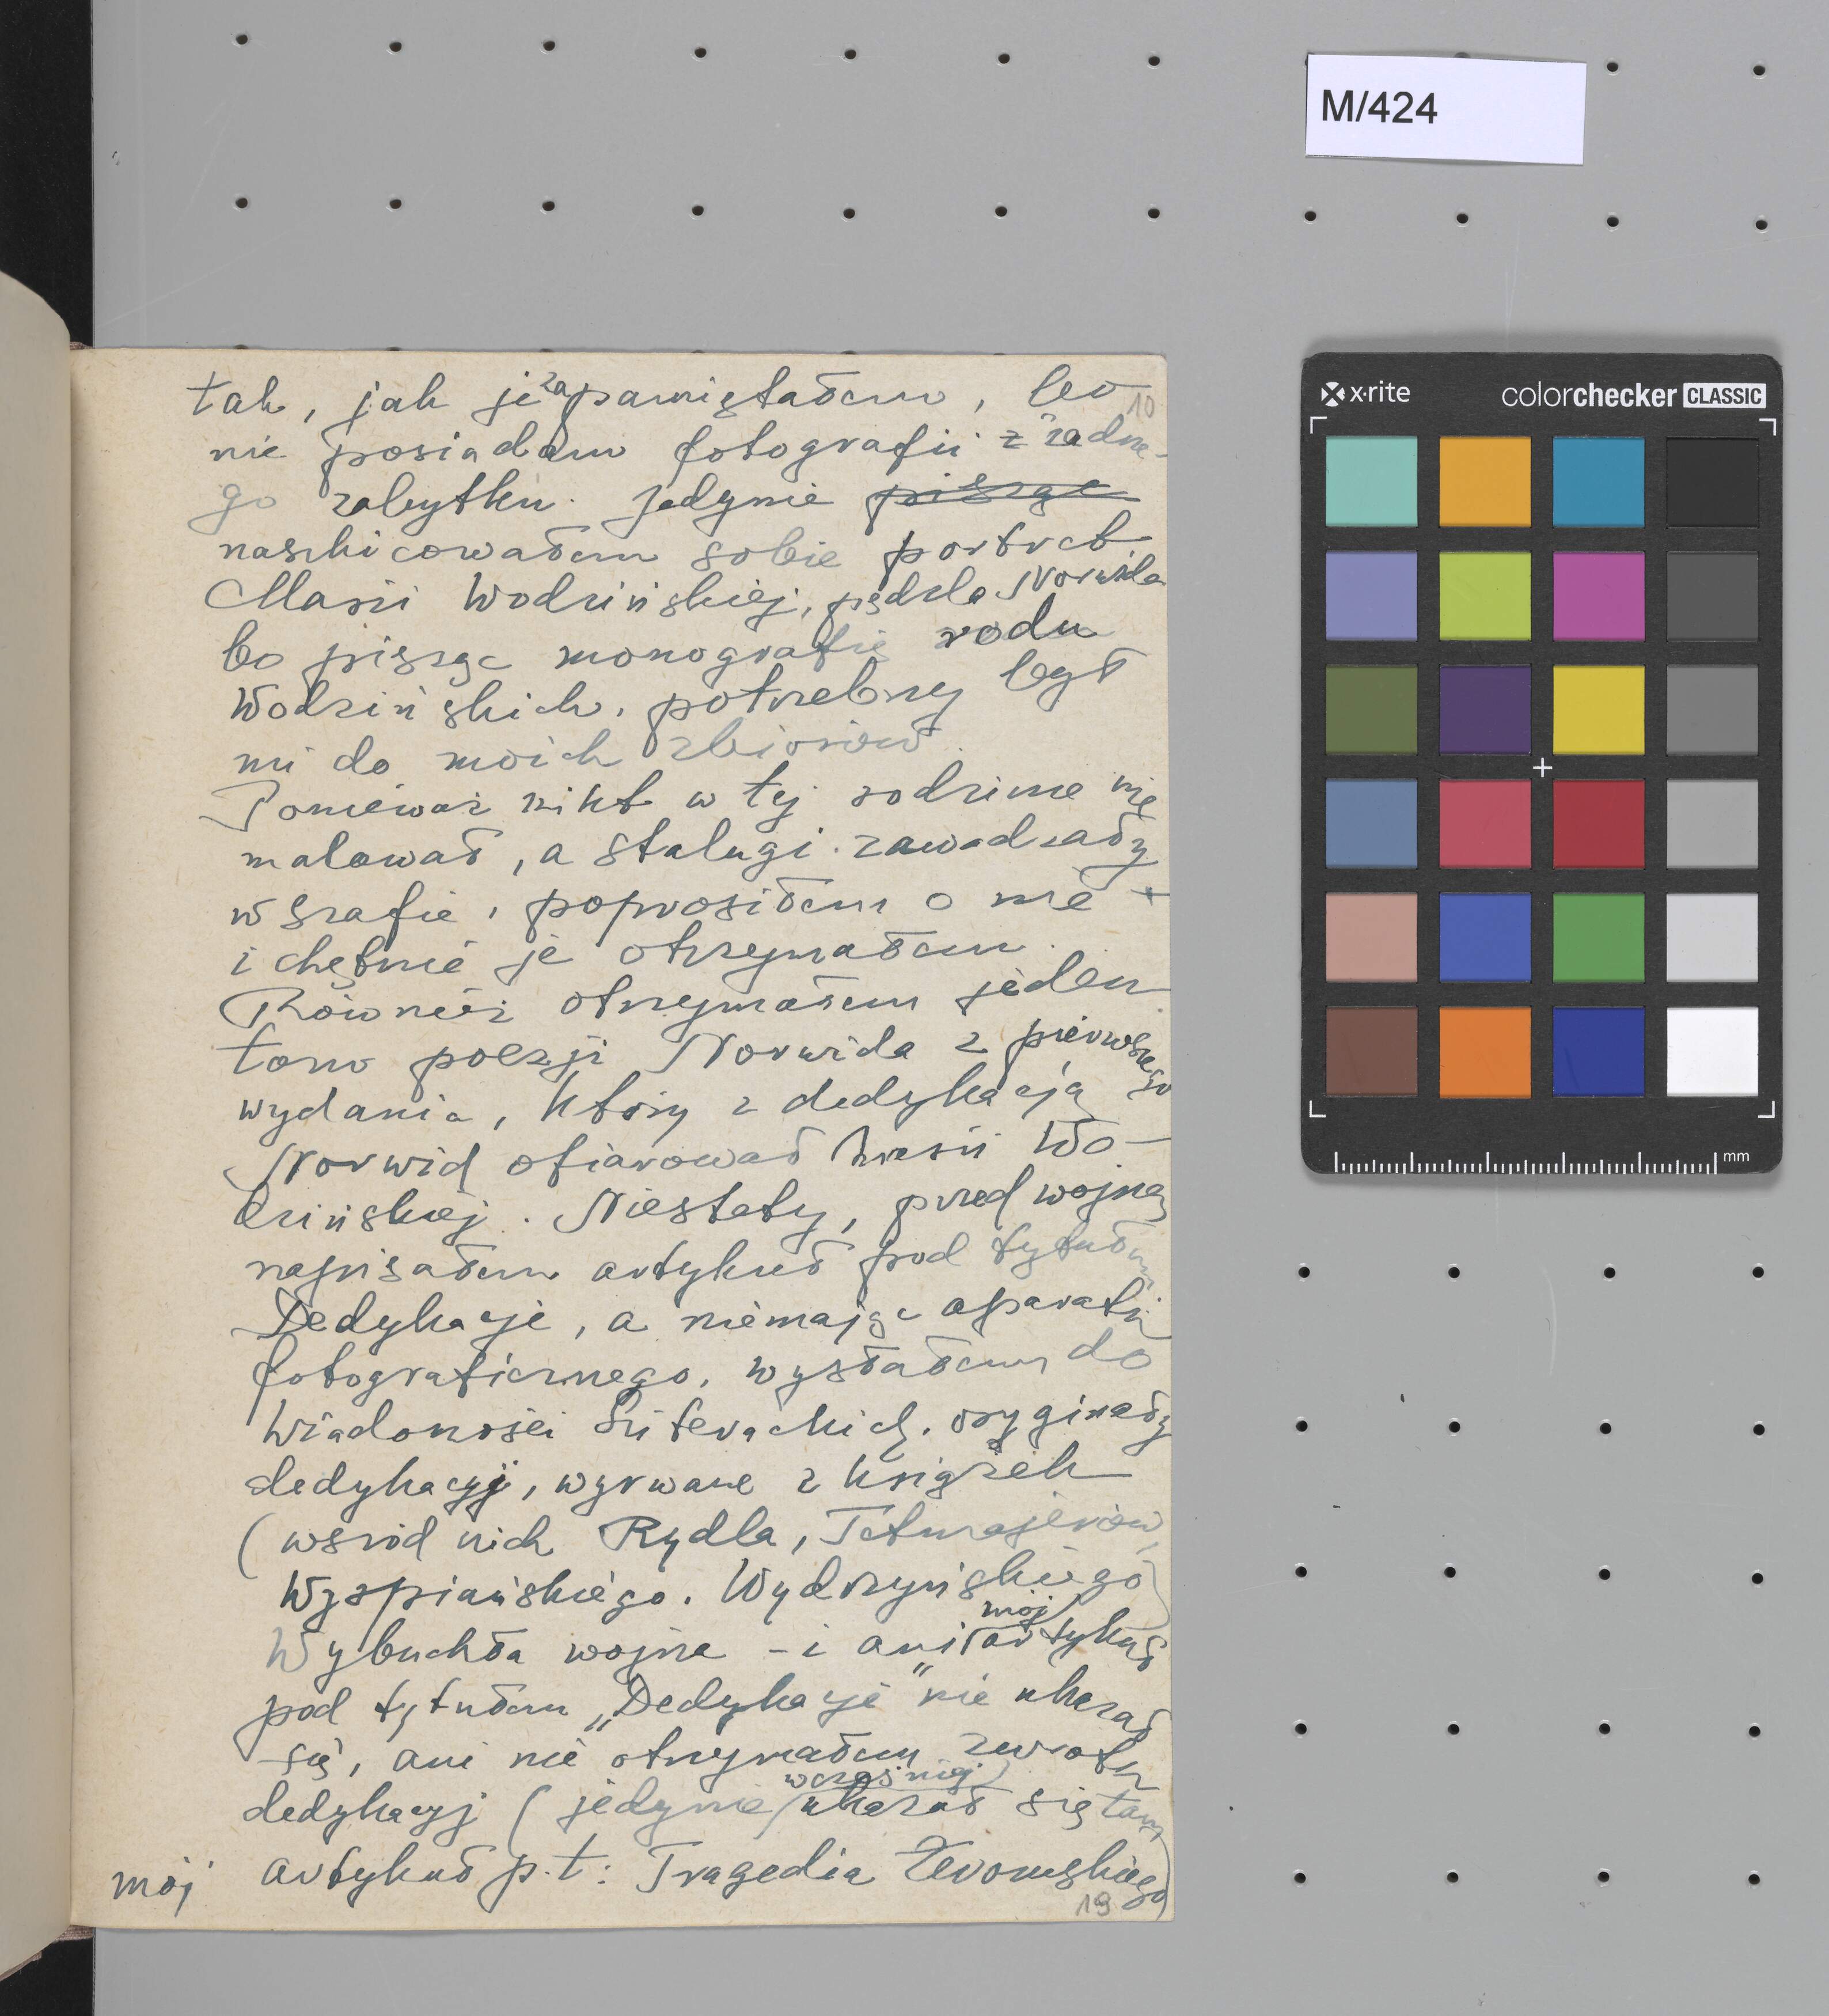 M/424
x·rite colorchecker CLASSIC
mm
tak, jak je zapamiętałem, bo
10
nie posiadam fotografii z żadne-
go zabytku. Jedynie pisząc
naszkicowałem sobie portret
Marii Wodzińskiej, pędzla Norwida
bo pisząc monografię rodu
Wodzińskich, potrzebny był
mi do moich zbiorów.
Ponieważ nikt w tej rodzinie nie
malował, a stalugi zawadzały
w szafie, poprosiłem o nie
i chętnie je otrzymałem.
Również otrzymałem jeden
tom poezji Norwida z pierwszego
wydania, który z dedykacją
Norwid ofiarował Marii Wo-
dzińskiej. Niestety, przed wojną
napisałem artykuł pod tytułem
Dedykacje, a niemając aparatu
fotograficznego, wysłałem do
Wiadomości Literackich, oryginały
dedykacyj, wyrwane z książek
(wśród nich Rydla, Tetmajerów,
Wyspiańskiego, Wydrzyńskiego)
Wybuchła wojna - i ani mój artykuł
pod tytułem „Dedykacje" nie ukazał
się, ani nie otrzymałem zwrotu
dedykacyj (jedynie wcześniej ukazał się tam
mój artykuł p.t: Tragedia Żeromskiego)
19